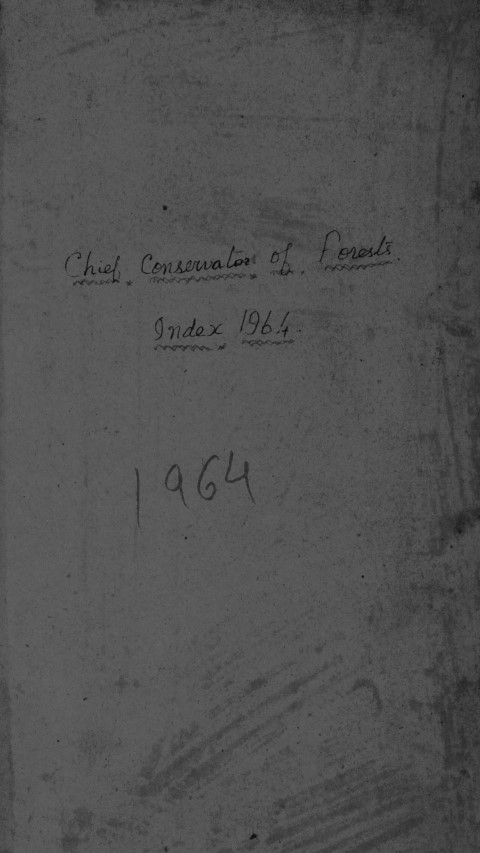 Chief Conservator of Forests.
Index 1964.
1964